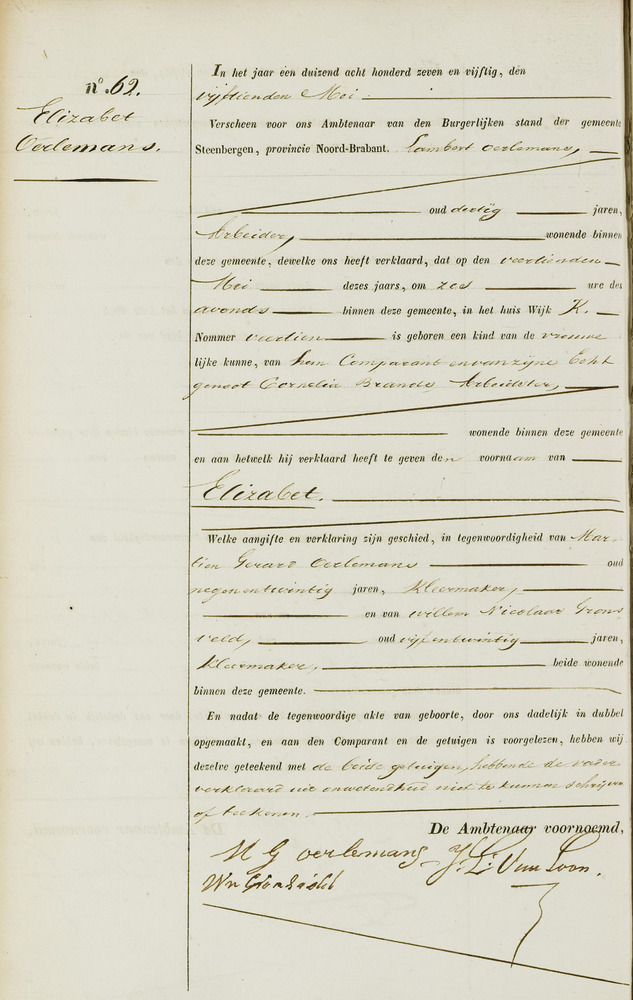 nº. 62.
Elizabet
Oerlemans.
In het jaar een duizend acht honderd zeven en vijftig, den
vijftienden Mei
Verscheen voor ons Ambtenaar van den Burgerlijken stand der gemeente
Steenbergen, provincie Noord-Brabant. Lambert Oerlemans,
oud dertig jaren,
Arbeider, wonende binnen
deze gemeente, dewelke ons heeft verklaard, dat op den veertienden
Mei dezes jaars, om zes ure des
avonds binnen deze gemeente, in het huis Wijk K.
Nommer veertien is geboren een kind van de vrouwe
lijke kunne, van hem Comparant en van zijne Echt
genoot Cornelia Brands, Arbeidster,
wonende binnen deze gemeente
en aan hetwelk hij verklaard heeft te geven den voornaam van
Elizabet.
Welke aangifte en verklaring zijn geschied, in tegenwoordigheid van Mar
tien Gerard Oerlemans oud
negen en twintig jaren, Kleermaker,
en van Willem Nicolaas Grons
veld, oud vijf en twintig jaren,
Kleermaker, beide wonende
binnen deze gemeente.
En nadat de tegenwoordige akte van geboorte, door ons dadelijk in dubbel
opgemaakt, en aan den Comparant en de getuigen is voorgelezen, hebben wij
dezelve geteekend met de beide getuigen, hebbende de vader
verklaard uit onwetendheid niet te kunnen schrijven
of teekenen.
De Ambtenaar voornoemd,
M G oerlemans J. L. Van Loon.
Wn